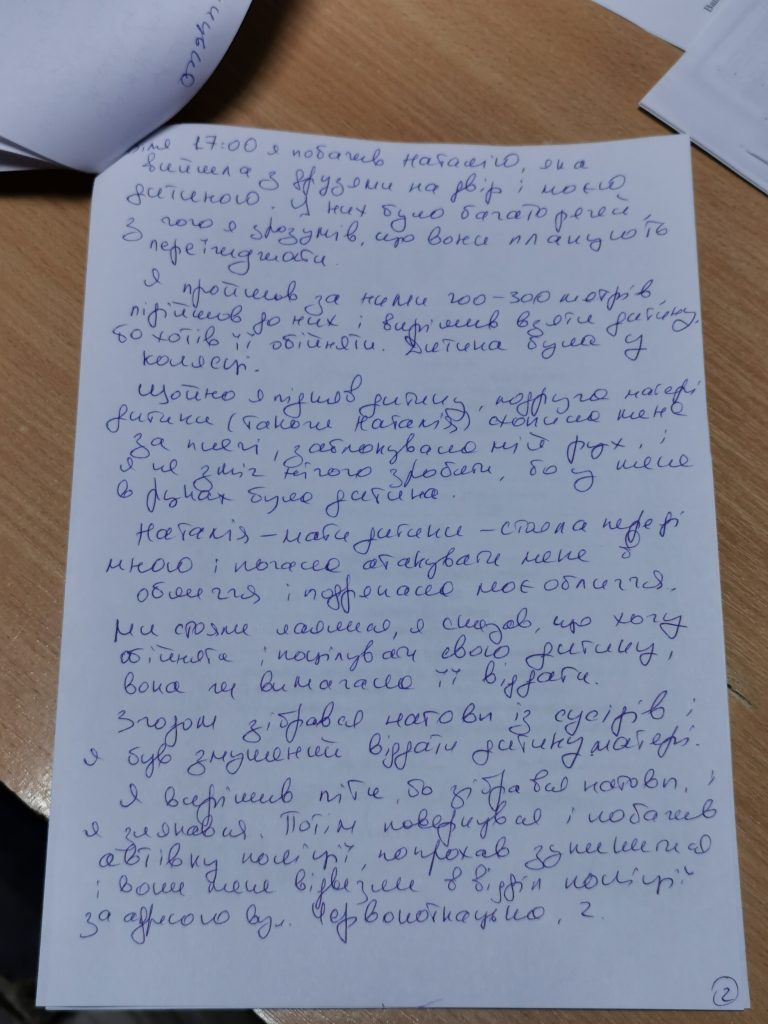 17:00 я побачив Наталію, яка
вийшла з друзями на двір і моєю
дитиною. У них було багато речей,
з чого я зрозумів, що вони планують
переїжджати.
Я пройшов за ними 200-300 метрів,
підійшов до них і вирішив взяти дитину,
бо хотів її обійняти. Дитина була у
колясці.
Щойно я підняв дитину, подруга матері
дитини (також Наталія) схопила мене
за плечі, заблокувала мій рух, і
я не зміг нічого зробити, бо у мене
в руках була дитина.
Наталія – мати дитини – стала переді
мною і почала атакувати мене в
обличчя і подряпала моє обличчя.
Ми стояли лаялися, я сказав, що хочу
обійняти і поцілувати свою дитину,
вона же вимагала її віддати.
Згодом зібрався натовп із сусідів і
я був змушений віддати дитину матері.
Я вирішив піти, бо зібрався натовп, і
я злякався. Потім повернувся і побачив
автівку поліції, попрохав зупинитися
і вони мене відвезли в відділ поліції
за адресою вул. Червоноткацька, 2.
2